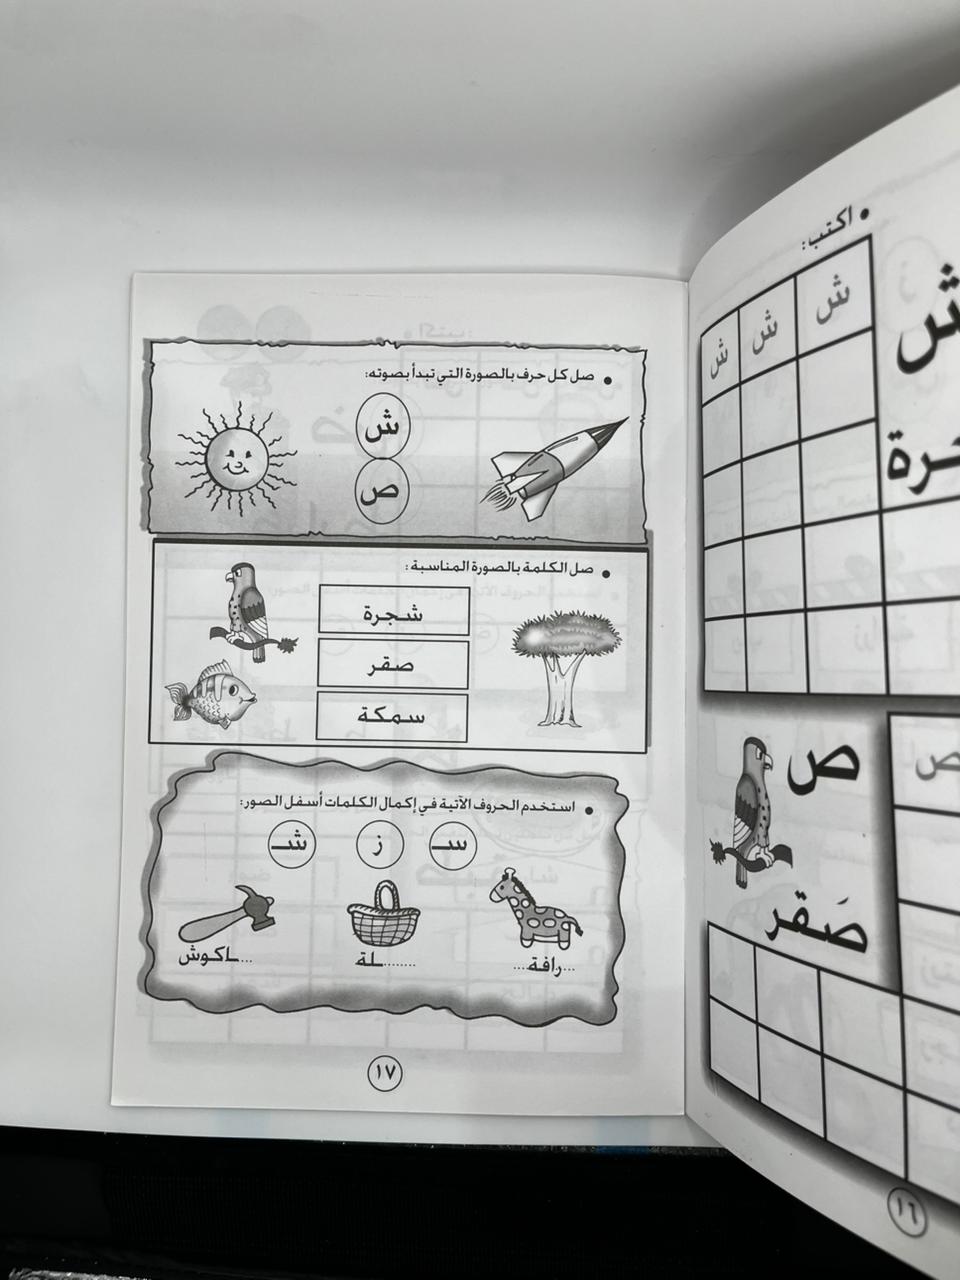 اكتب:
ش ش ش
ص
ص
صَقر
١٦
صل كل حرف بالصورة التي تبدأ بصوته:
ش
ص
صل الكلمة بالصورة المناسبة:
شجرة
صقر
سمكة
استخدم الحروف الآتية في إكمال الكلمات أسفل الصور:
سـ ز شـ
...رافة.... ........ـلة ...ـاكوش
١٧